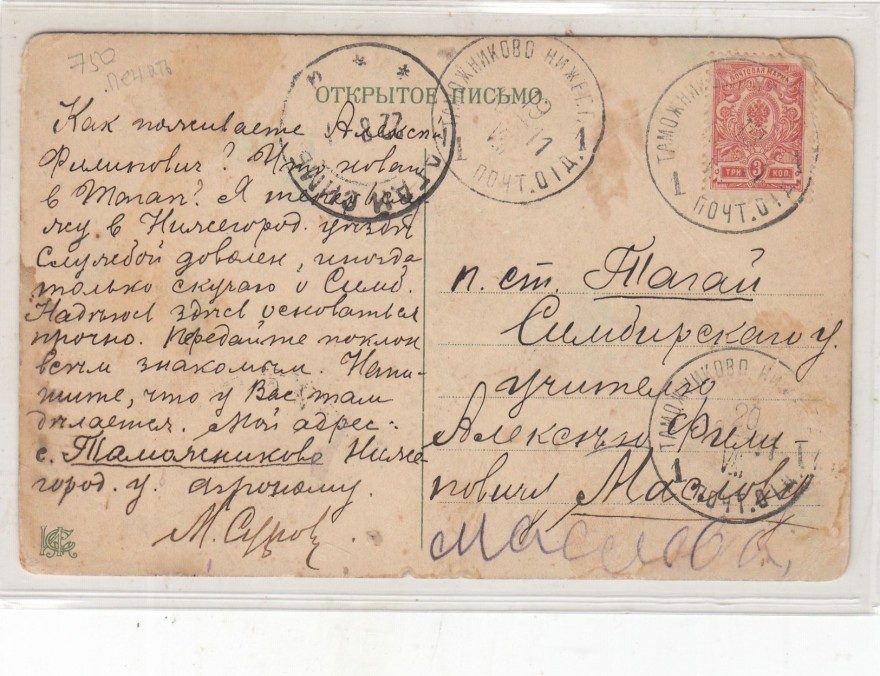 750
печать
ОТКРЫТОЕ ПИСЬМО.
Как поживаете Алексѣй
Филипович? Что новаго
в Тагаѣ? Я теперь слу-
жу в Нижегород. уѣздѣ
службой доволен, иногда
только скучаю о Симб.
Надѣюсь здѣсь основаться
прочно. Передайте поклон
всѣм знакомым. Напи-
шите, что у Вас там
дѣлается. Мой адрес:
с. Таможниково Ниже-
город. у. агроному.
М. Суров
п. ст. Тагай
Симбирскаго у.
учителю
Алексѣю Фили-
повичу Маслову
Маслова,
ПОЧТОВАЯ МАРКА
ТРИ 3 КОП.
ТАМОЖНИКОВО НИЖЕГ. Г.
1 ПОЧТ. ОТД. 1
ТАМОЖНИКОВО
1 ПОЧТ. ОТД.
ТАМОЖНИКОВО НИ
20
1 ПОЧТ. ОТД.
8 22